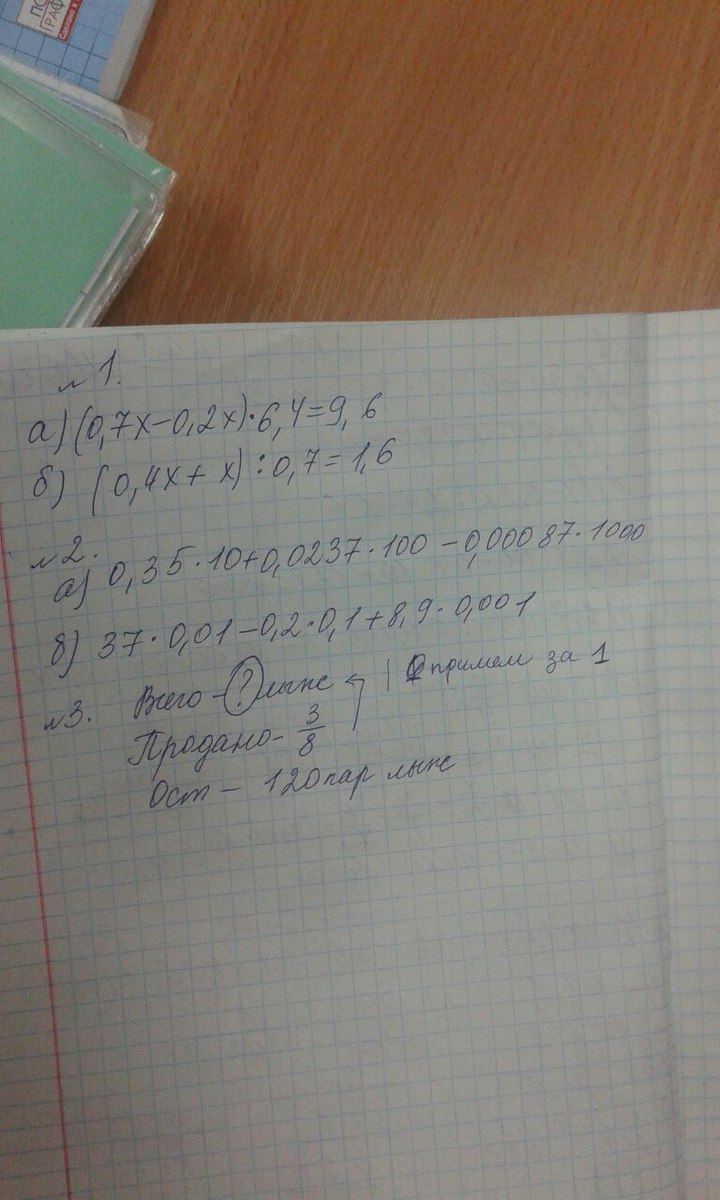 ПО
ГРАФ
Сделано в
№1.
а) (0,7х-0,2х)·6,4=9,6
б) (0,4х+х):0,7=1,6
№2.
а) 0,35·10+0,0237·100-0,00087·1000
в) 37·0,01-0,2·0,1+8,9·0,001
№3. Всего - ? лыж | примем за 1
Продано- 3/8
Ост - 120 пар лыж